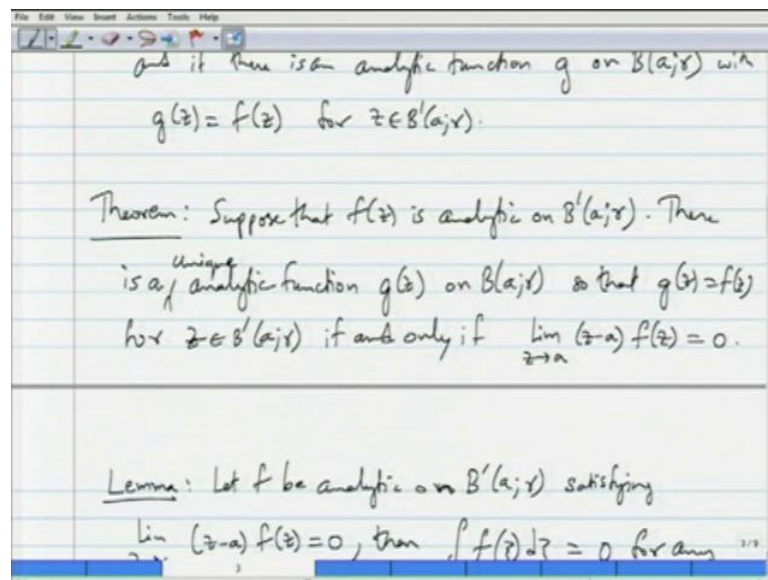 File Edit View Insert Actions Tools Help
and if there is an analytic function g on B(a;r) with
g(z) = f(z) for z∈B'(a;r).
Theorem: Suppose that f(z) is analytic on B'(a;r). There
is a unique analytic function g(z) on B(a;r) so that g(z)=f(z)
for z∈B'(a;r) if and only if lim z→a (z-a) f(z) = 0.
Lemma: Let f be analytic on B'(a;r) satisfying
lim (z-a) f(z) = 0, then ∫ f(z) dz = 0 for any
3